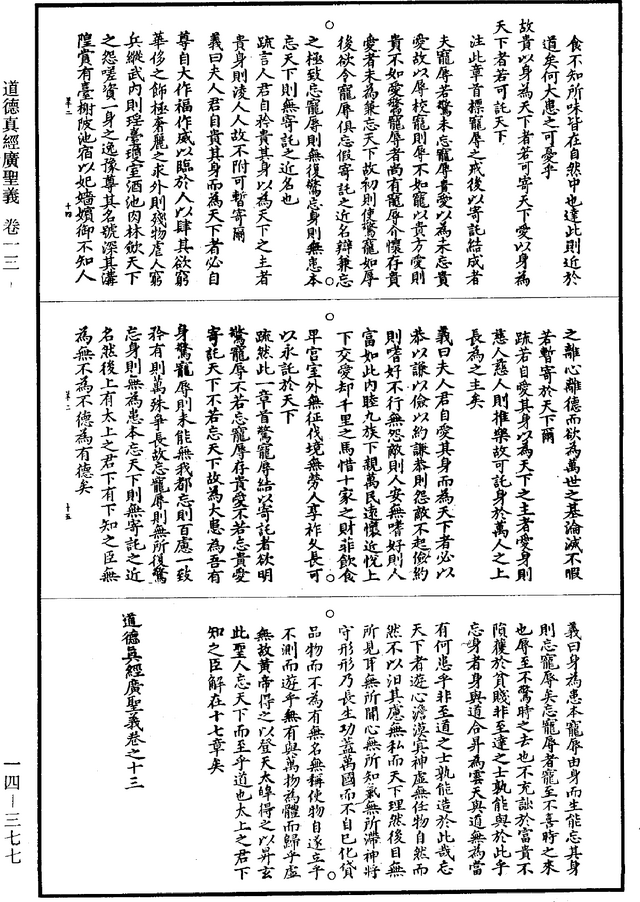 食不知所味皆在自然中也達此則近於
道矣何大患之可憂乎
故貴以身為天下者若可寄天下愛以身為
天下者若可託天下
注此章首標寵辱之戒後以寄託結成者
夫寵辱若驚未忘寵辱貴愛以為未忘貴
愛故以辱校寵則辱不如寵以貴方愛則
貴不如愛驚寵辱者尚有寵辱介懷存貴
愛者未為兼忘天下故初則使驚寵如辱
後欲令寵辱俱忘假寄託之近名辯兼忘
之極致忘寵辱則無復驚忘身則無患本
忘天下則無寄託之近名也
疏言人君自矜貴其身以為天下之主者
貴身則淩人人故不附可暫寄爾
義曰夫人君自貴其身而為天下者必自
尊自大作福作威以臨於人以肆其欲窮
華侈之飾極奢麗之求外則殘物虐人窮
兵縱武內則瑤臺瓊室酒池肉林歛天下
之怨嗟資一身之逸豫尊其名號深其溝
隍賞有臺榭陂池宿以妃嬙嬪御不知人
之離心離德而欲為萬世之基淪滅不暇
若暫寄於天下爾
疏若自愛其身以為天下之主者愛身則
慈人慈人則推樂故可託身於萬人之上
長為之主矣
義曰夫人君自愛其身而為天下者必以
恭以謙以儉以約謙恭則怨敵不起儉約
則嗜好不行無怨敵則人安無嗜好則人
富如此內睦九族下親萬民遠懷近悅上
下交愛却千里之馬惜十家之財菲飲食
卑宮室外無征伐境無勞人享祚久長可
以永託於天下
疏然此一章首驚寵辱結以寄託者欲明
驚寵辱不若忘寵辱存貴愛不若忘貴愛
寄託天下不若忘天下故為大患為吾有
身驚寵辱則未能無我都忘則百慮一致
矜有則萬殊爭長故忘寵辱則無所復驚
忘身則無為患本忘天下則無寄託之近
名然後上有太上之君下有下知之臣無
為無不為不德為有德矣
義曰身為患本寵辱由身而生能忘其身
則忘寵辱矣忘寵辱者寵至不喜時之來
也辱至不驚時之去也不充詘於富貴不
隕穫於貧賤非至達之士孰能與於此乎
忘身者身與道合昇為雲天與道無為當
有何患乎非至道之士孰能造於此哉忘
天下者遊心澹漠寘神虛無任物自然而
然不以汨其慮無私而天下理然後目無
所見耳無所聞心無所知氣無所滯神將
守形形乃長生功蓋萬國而不自已化貸
品物而不為有無名無稱使物自遂立乎
不測而遊乎無有與萬物為體而歸乎虛
無故黃帝得之以登天太皞得之以昇玄
此聖人忘天下而至乎道也太上之君下
知之臣解在十七章矣
道德真經廣聖義卷之十三
道德真經廣聖義 卷一三
一四—三七七